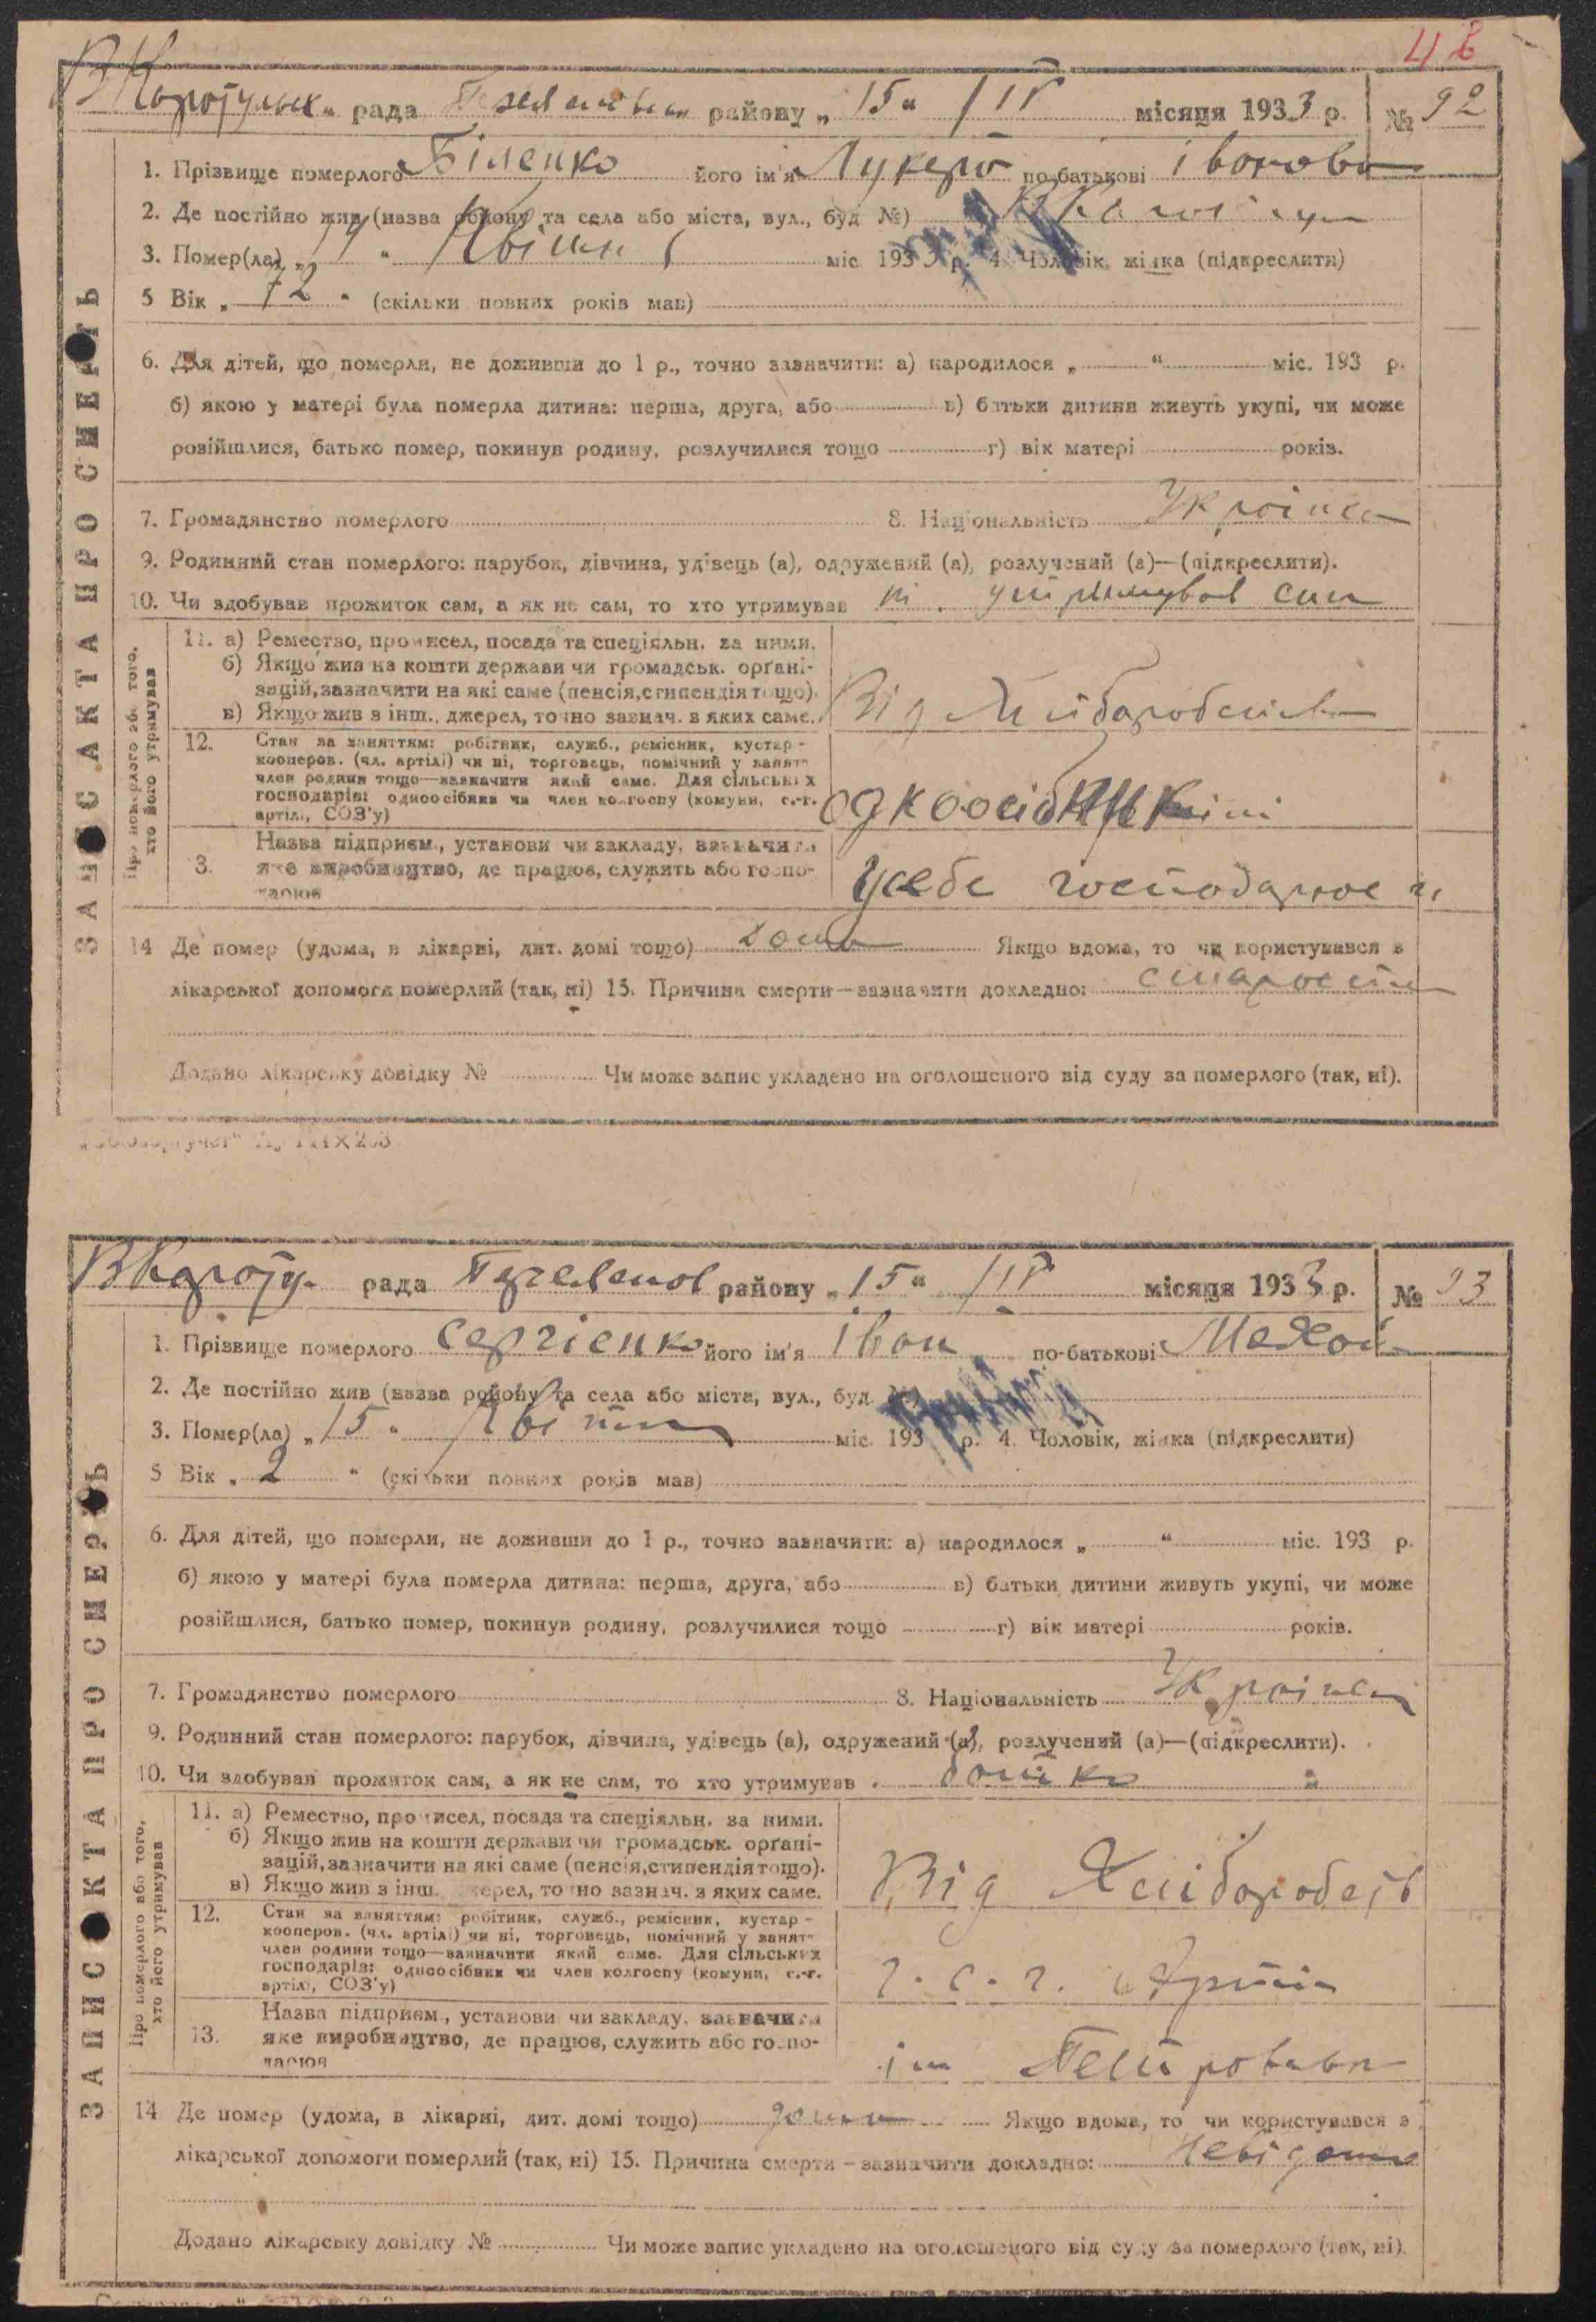 В Каротульск рада Переяславськ району „15“ IV місяця 1933 р. № 92
1. Прізвище померлого Біленко його ім'я Лукерія по батькові Іванова
2. Де постійно жив (назва району та села або міста, вул., буд №)
3. Помер(ла) „14“ Квітня міс 1933 р. 4. Чоловік, жінка (підкреслити)
5 Вік „72“ (скільки повних років мав)
6. Для дітей, що померли, не доживши до 1 р., точно зазначити: а) народилося „ “ міс. 193 р.
б) якою у матері була померла дитина: перша, друга, або в) батьки дитини живуть укупі, чи може
розійшлися, батько помер, покинув родину, розлучилися тощо г) вік матері років.
7. Громадянство померлого 8. Національність Українка
9. Родинний стан померлого: парубок, дівчина, удівець (а), одружений (а), розлучений (а)—(підкреслити).
10. Чи здобував прожиток сам, а як не сам, то хто утримував ні. утримував син
Про померлого або того, хто його утримував
11. а) Ремество, промисел, посада та спеціяльн. за ними.
б) Якщо жив на кошти держави чи громадськ. органі-
зацій, зазначити на які саме (пенсія, стипендія тощо).
в) Якщо жив з інш. джерел, точно зазнач. з яких саме.
Від Хліборобства
12. Стан за заняттям: робітник, служб., ремісник, кустар-
кооперов. (чл. артілі) чи ні, торговець, помічний у занятт
член родини тощо—зазначити який саме. Для сільських
господарів: одноосібник чи член колгоспу (комуни, с.-г.
артілі, СОЗ'у)
одноосібник
3. Назва підприєм., установи чи закладу, зазначити
яке виробництво, де працює, служить або госпо-
дарює
Усебе господарює
14 Де помер (удома, в лікарні, дит. домі тощо) дома Якщо вдома, то чи користувався з
лікарської допомоги померлий (так, ні) 15. Причина смерти—зазначити докладно: старости
Додано лікарську довідку № Чи може запис укладено на оголошеного від суду за померлого (так, ні).
ЗАПИС АКТА ПРО СМЕРТЬ
В Кароту рада Переяслов району „15“ IV місяця 1933 р. № 93
1. Прізвище померлого Сергієнко його ім'я Іван по-батькові
2. Де постійно жив (назва району та села або міста, вул., буд.
3. Помер(ла) „15“ Квітня міс. 193 р. 4. Чоловік, жінка (підкреслити)
5 Вік „2“ (скільки повних років мав)
6. Для дітей, що померли, не доживши до 1 р., точно зазначити: а) народилося „ “ міс. 193 р.
б) якою у матері була померла дитина: перша, друга, або в) батьки дитини живуть укупі, чи може
розійшлися, батько помер, покинув родину, розлучилися тощо г) вік матері років.
7. Громадянство померлого 8. Національність Україней
9. Родинний стан померлого: парубок, дівчина, удівець (а), одружений (а), розлучений (а)—(підкреслити).
10. Чи здобував прожиток сам, а як не сам, то хто утримував батько
Про померлого або того, хто його утримував
11. а) Ремество, промисел, посада та спеціяльн. за ними.
б) Якщо жив на кошти держави чи громадськ. органі-
зацій, зазначити на які саме (пенсія, стипендія тощо).
в) Якщо жив з інш. джерел, точно зазнач. з яких саме.
Від Хліборобств
12. Стан за заняттям: робітник, служб., ремісник, кустар-
кооперов. (чл. артілі) чи ні, торговець, помічний у занятт
член родини тощо—зазначити який саме. Для сільських
господарів: одноосібник чи член колгоспу (комуни, с.-г.
артілі, СОЗ'у)
Ч. С. г. Артіл
13. Назва підприєм., установи чи закладу, зазначити
яке виробництво, де працює, служить або госпо-
дарює
ім Петровськ
14 Де помер (удома, в лікарні, дит. домі тощо) дома Якщо вдома, то чи користувався з
лікарської допомоги померлий (так, ні) 15. Причина смерти—зазначити докладно: Невідомо
Додано лікарську довідку № Чи може запис укладено на оголошеного від суду за померлого (так, ні).
ЗАПИС АКТА ПРО СМЕРТЬ